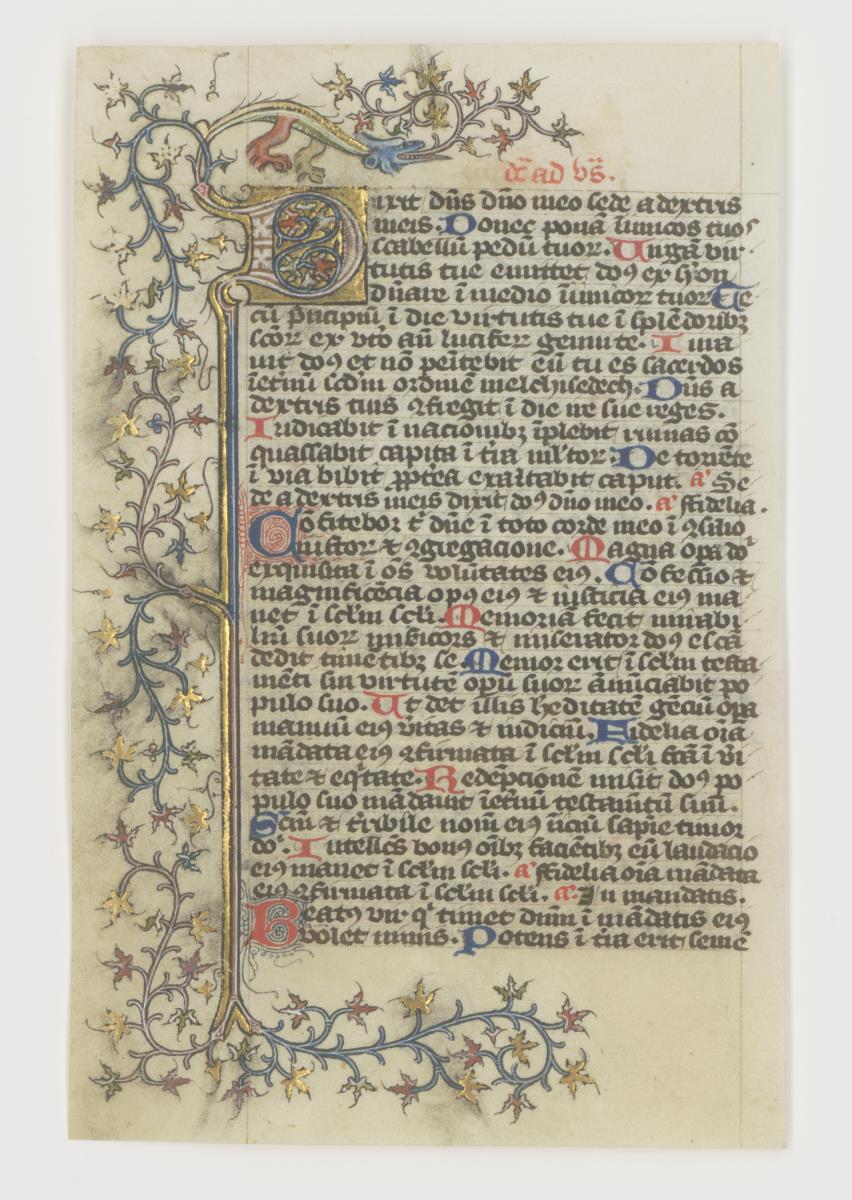 dc̄ ad vs̄.
Dixit dn̄s dn̄o meo sede a dextris
meis. Donec ponā īimicos tuos
scabellū pedū tuoꝝ. Uirgā vir
tutis tue emittet dn̄s ex syon
dn̄are ī medio īimicoꝝ tuoꝝ Te
cū prīcipiū ī die virtutis tue ī splēdoribꝫ
scōꝝ ex vt̄o an̄ luciferꝝ genui te. Iura
uit dn̄s et nō penitebit eū tu es sacerdos
ī et̄nū scd̄m ordinē melchisedech. Dn̄s a
dextris tuis ꝯfregit ī die ire sue reges.
Iudicabit ī nacionibꝫ īplebit ruinas cō
quassabit capita ī t̄ra ml̄toꝝ. De torrēte
ī via bibit ꝓpt̄ea exaltabit caput. a᷎ Se
de a dextris meis dixit dn̄s dn̄o meo. a᷎ ffidelia.
Cōfitebor t̄ dn̄e ī toto corde meo ī ꝯsilio
iustoꝝ ⁊ ꝯgregacione. Magna oꝑa dn̄i
exquisita ī oēs volūtates eiꝰ. Cōfessio ⁊
magnificēcia opꝰ eiꝰ ⁊ iusticia eiꝰ ma
net ī scl̄m scl̄i. Memoriā fecit mirabi
liū suoꝝ mīsericors ⁊ miserator dn̄s escā
dedit timētibꝫ se. Memor erit ī scl̄m testa
mēti sui virtutē opū suoꝝ ānūciabit po
pulo suo. Ut det illis heditatē gēciū oꝑa
manuū eiꝰ v̄itas ⁊ iudiciū. Fidelia oīa
mādata eiꝰ ꝯfirmata ī scl̄m scl̄i fc̄a ī v̄i
tate ⁊ eq̄tate. Redēpcionē misit dn̄s po
pulo suo mādauit ī et̄nū testamētū suū.
Scm̄ ⁊ t̄ribile nomē eiꝰ iniciū sapiē timor
dn̄i. Intellectꝰ bonꝰ oībꝫ faciētibꝫ eū laudacio
eiꝰ manet ī scl̄m scl̄i. a᷎ ffidelia oīa mādata
eiꝰ ꝯfirmata ī scl̄m scl̄i. a᷎. In mandatis.
Beatꝰ vir q̄ timet dn̄m ī mādatis eiꝰ
volet nimis. Potens ī t̄ra erit semē